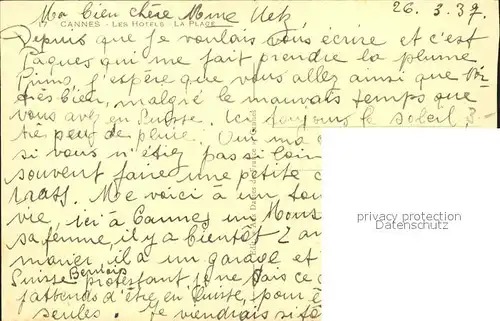 26.3.37.
Ma bien chère Mme Uetz
CANNES - LES HOTELS - LA PLAGE
Depuis que je voulais vous écrire et c'est
Pâques qui me fait prendre la plume
j'espère que vous allez ainsi que
très bien, malgré le mauvais temps que
vous avez en Suisse. Ici toujours le soleil,
très peu de pluie. Oui ma
si vous n'étiez pas si loin
souvent faire une petite
Me voici à un
vie, ici à Cannes un Mons
sa femme, il y a bientôt 2 an
marier, il a un garage et
Suisse Bernois protestant, je ne sais ce
j'attends d'être en Suisse, pour ê
seules. Je viendrais si tô
privacy protection
Datenschutz